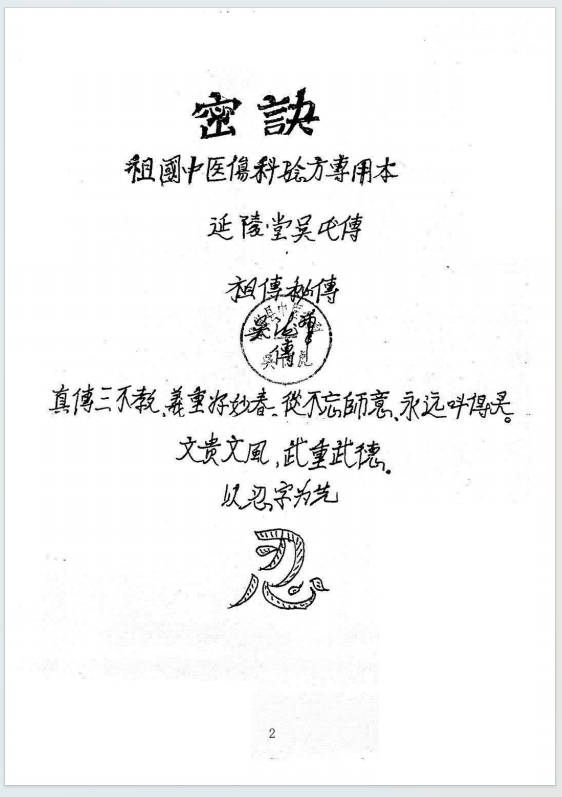 密訣
祖國中医傷科騐方專用本
延陵堂吳氏傳
祖傳秘傳
吳
傳
真傳三不教、義重好妙春、從不忘師意、永远叫得灵。
文贵文風,武重武德。
以忍字为先
忍
2